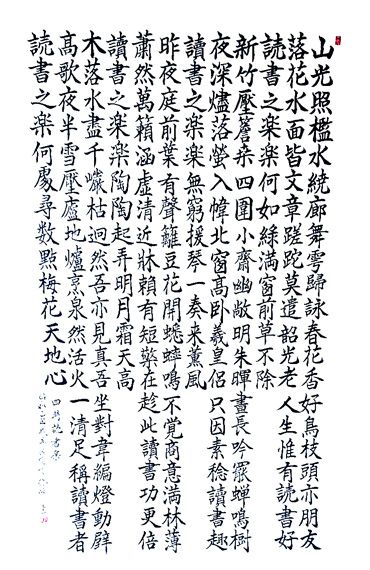 山光照檻水繞廊舞雩歸詠春花香好鳥枝頭亦朋友
落花水面皆文章蹉跎莫遣韶光老人生惟有読書好
読書之楽楽何如綠満窗前草不除
新竹壓簷桑四圍小齋幽敞明朱暉晝長吟罷蟬鳴樹
夜深燼落螢入幃北窗高臥羲皇侶只因素稔讀書趣
讀書之楽楽無窮援琴一奏来薫風
昨夜庭前葉有聲籬豆花開蟋蟀鳴不覚商意満林薄
蕭然萬籟涵虛清近牀頼有短檠在趁此讀書功更倍
讀書之楽楽陶陶起弄明月霜天高
木落水盡千巖枯迥然吾亦見真吾坐對韋編燈動壁
高歌夜半雪壓廬地爐烹泉然活火一清足稱讀書者
読書之楽何處尋数點梅花天地心
四時読書楽